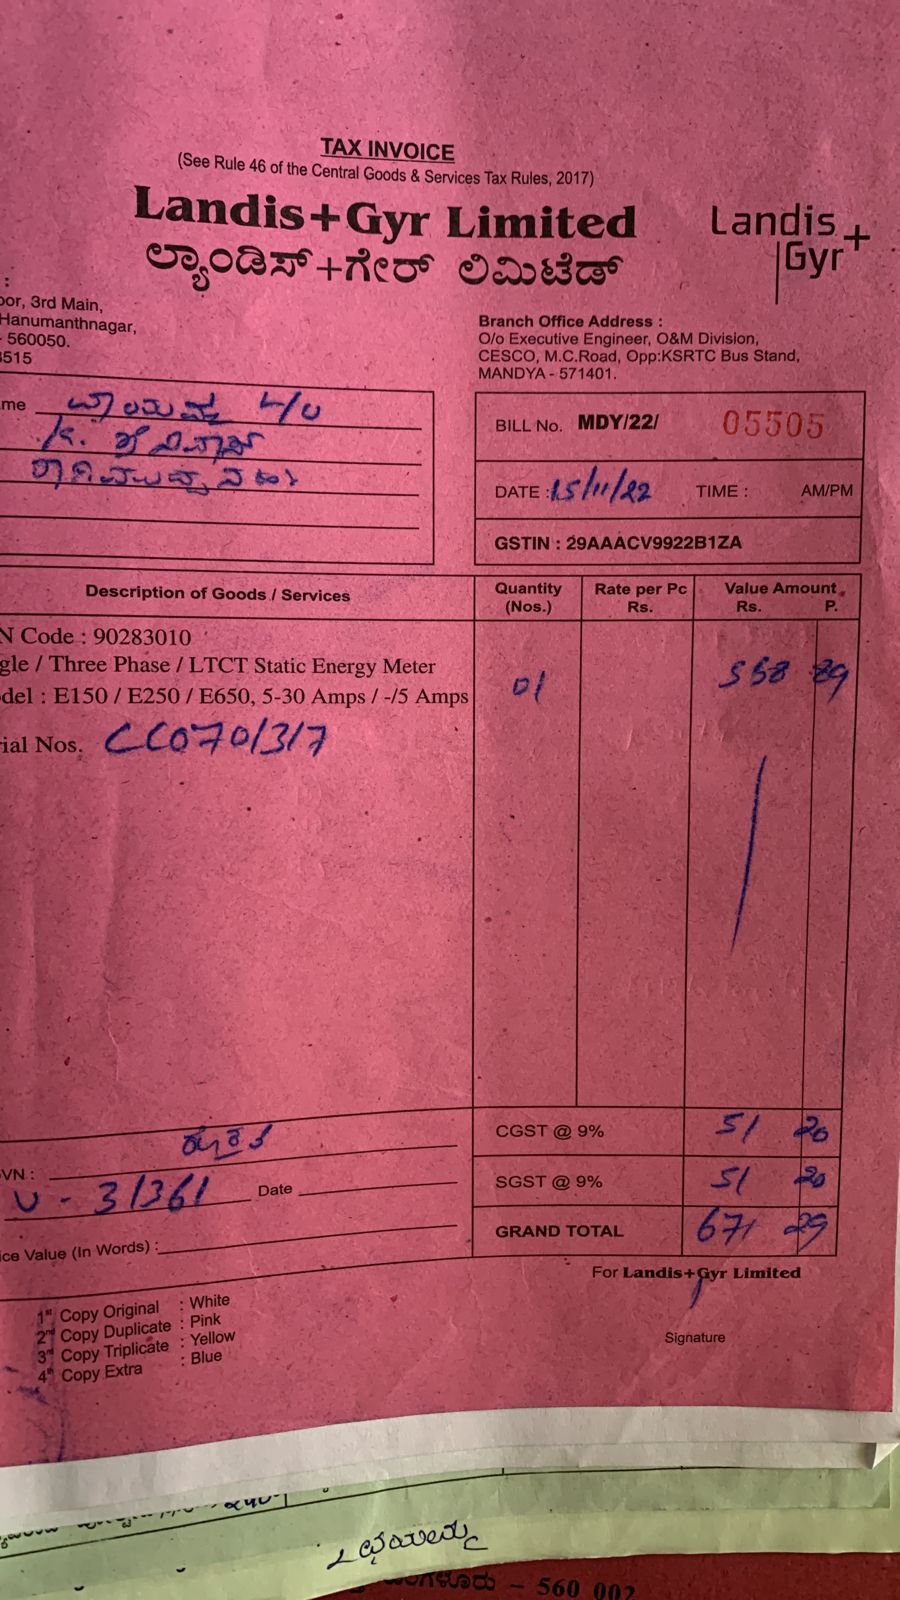 TAX INVOICE
(See Rule 46 of the Central Goods & Services Tax Rules, 2017)
Landis+Gyr Limited
ಲ್ಯಾಂಡಿಸ್+ಗೇರ್ ಲಿಮಿಟೆಡ್
Landis
Gyr+
:
oor, 3rd Main,
Hanumanthnagar,
- 560050.
3515
Branch Office Address :
O/o Executive Engineer, O&M Division,
CESCO, M.C.Road, Opp:KSRTC Bus Stand,
MANDYA - 571401.
me
BILL No. MDY/22/ 05505
DATE : 15/11/22 TIME : AM/PM
GSTIN : 29AAACV9922B1ZA
Description of Goods / Services Quantity (Nos.) Rate per Pc Rs. Value Amount Rs. P.
N Code : 90283010
gle / Three Phase / LTCT Static Energy Meter
del : E150 / E250 / E650, 5-30 Amps / -/5 Amps
01 568 89
ial Nos. CC0701317
CGST @ 9% 51 20
VN :
U - 31361 Date
SGST @ 9% 51 20
GRAND TOTAL 671 29
ice Value (In Words) :
For Landis+Gyr Limited
Signature
1st Copy Original : White
2nd Copy Duplicate : Pink
3rd Copy Triplicate : Yellow
4th Copy Extra : Blue
- 560 002